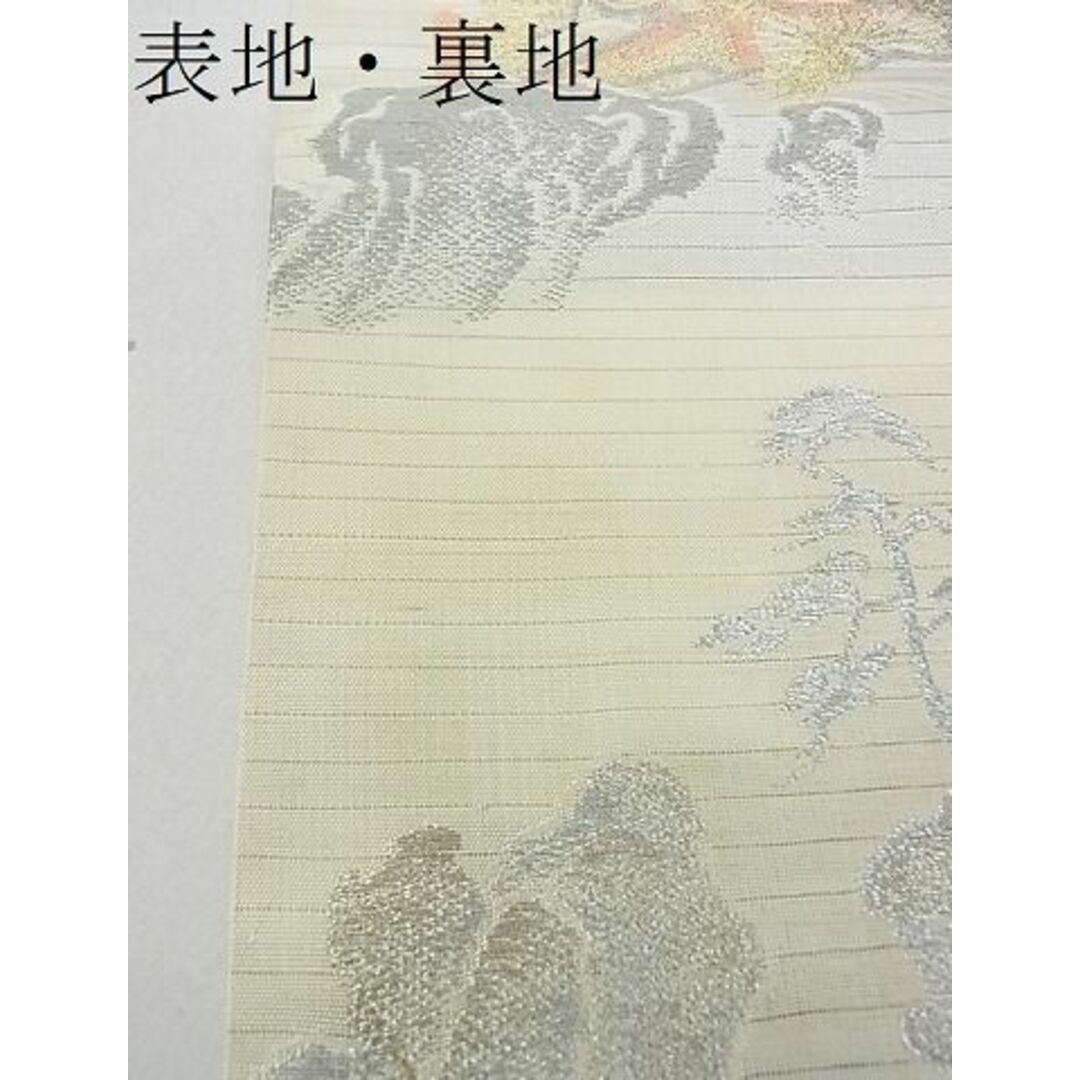 表地・裏地